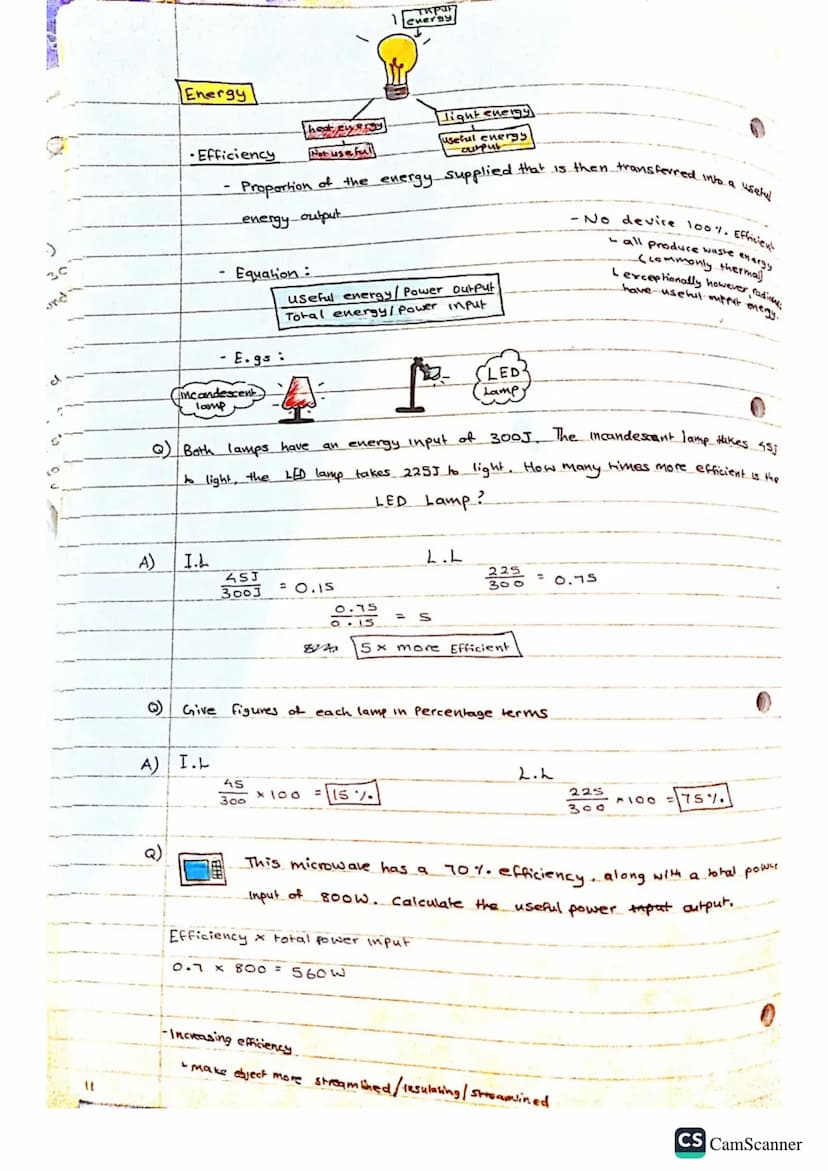 Input
energy
Energy
heat energy
light energy
Not useful
useful energy
output
• Efficiency
- Proportion of the energy supplied that is then transferred into a useful
energy output
- No device 100% Efficient
↳ all produce waste energy
(commonly thermal)
↳ exceptionally however,
have useful output energy.
- Equation :
useful energy/Power output
Total energy/Power input
- E.gs :
Incandescent
lamp
LED
Lamp
Q) Both lamps have an energy input of 300J. The incandescant lamp takes 45J
to light, the LED lamp takes 225J to light. How many times more efficient is the
LED Lamp?
A) I.L
L.L
45J
300J = 0.15
225
300 = 0.75
0.75
0.15 = 5
5x more Efficient
Q) Give figures of each lamp in Percentage terms
A) I.L
L.L
45
300 x 100 = 15%
225
300 x 100 = 75%
Q) This microwave has a 70% efficiency, along with a total power
input of 800W. Calculate the useful power input output.
Efficiency x total power input
0.7 x 800 = 560W
- Increasing efficiency
↳ make object more streamlined/insulating/streamlined
11
CS CamScanner